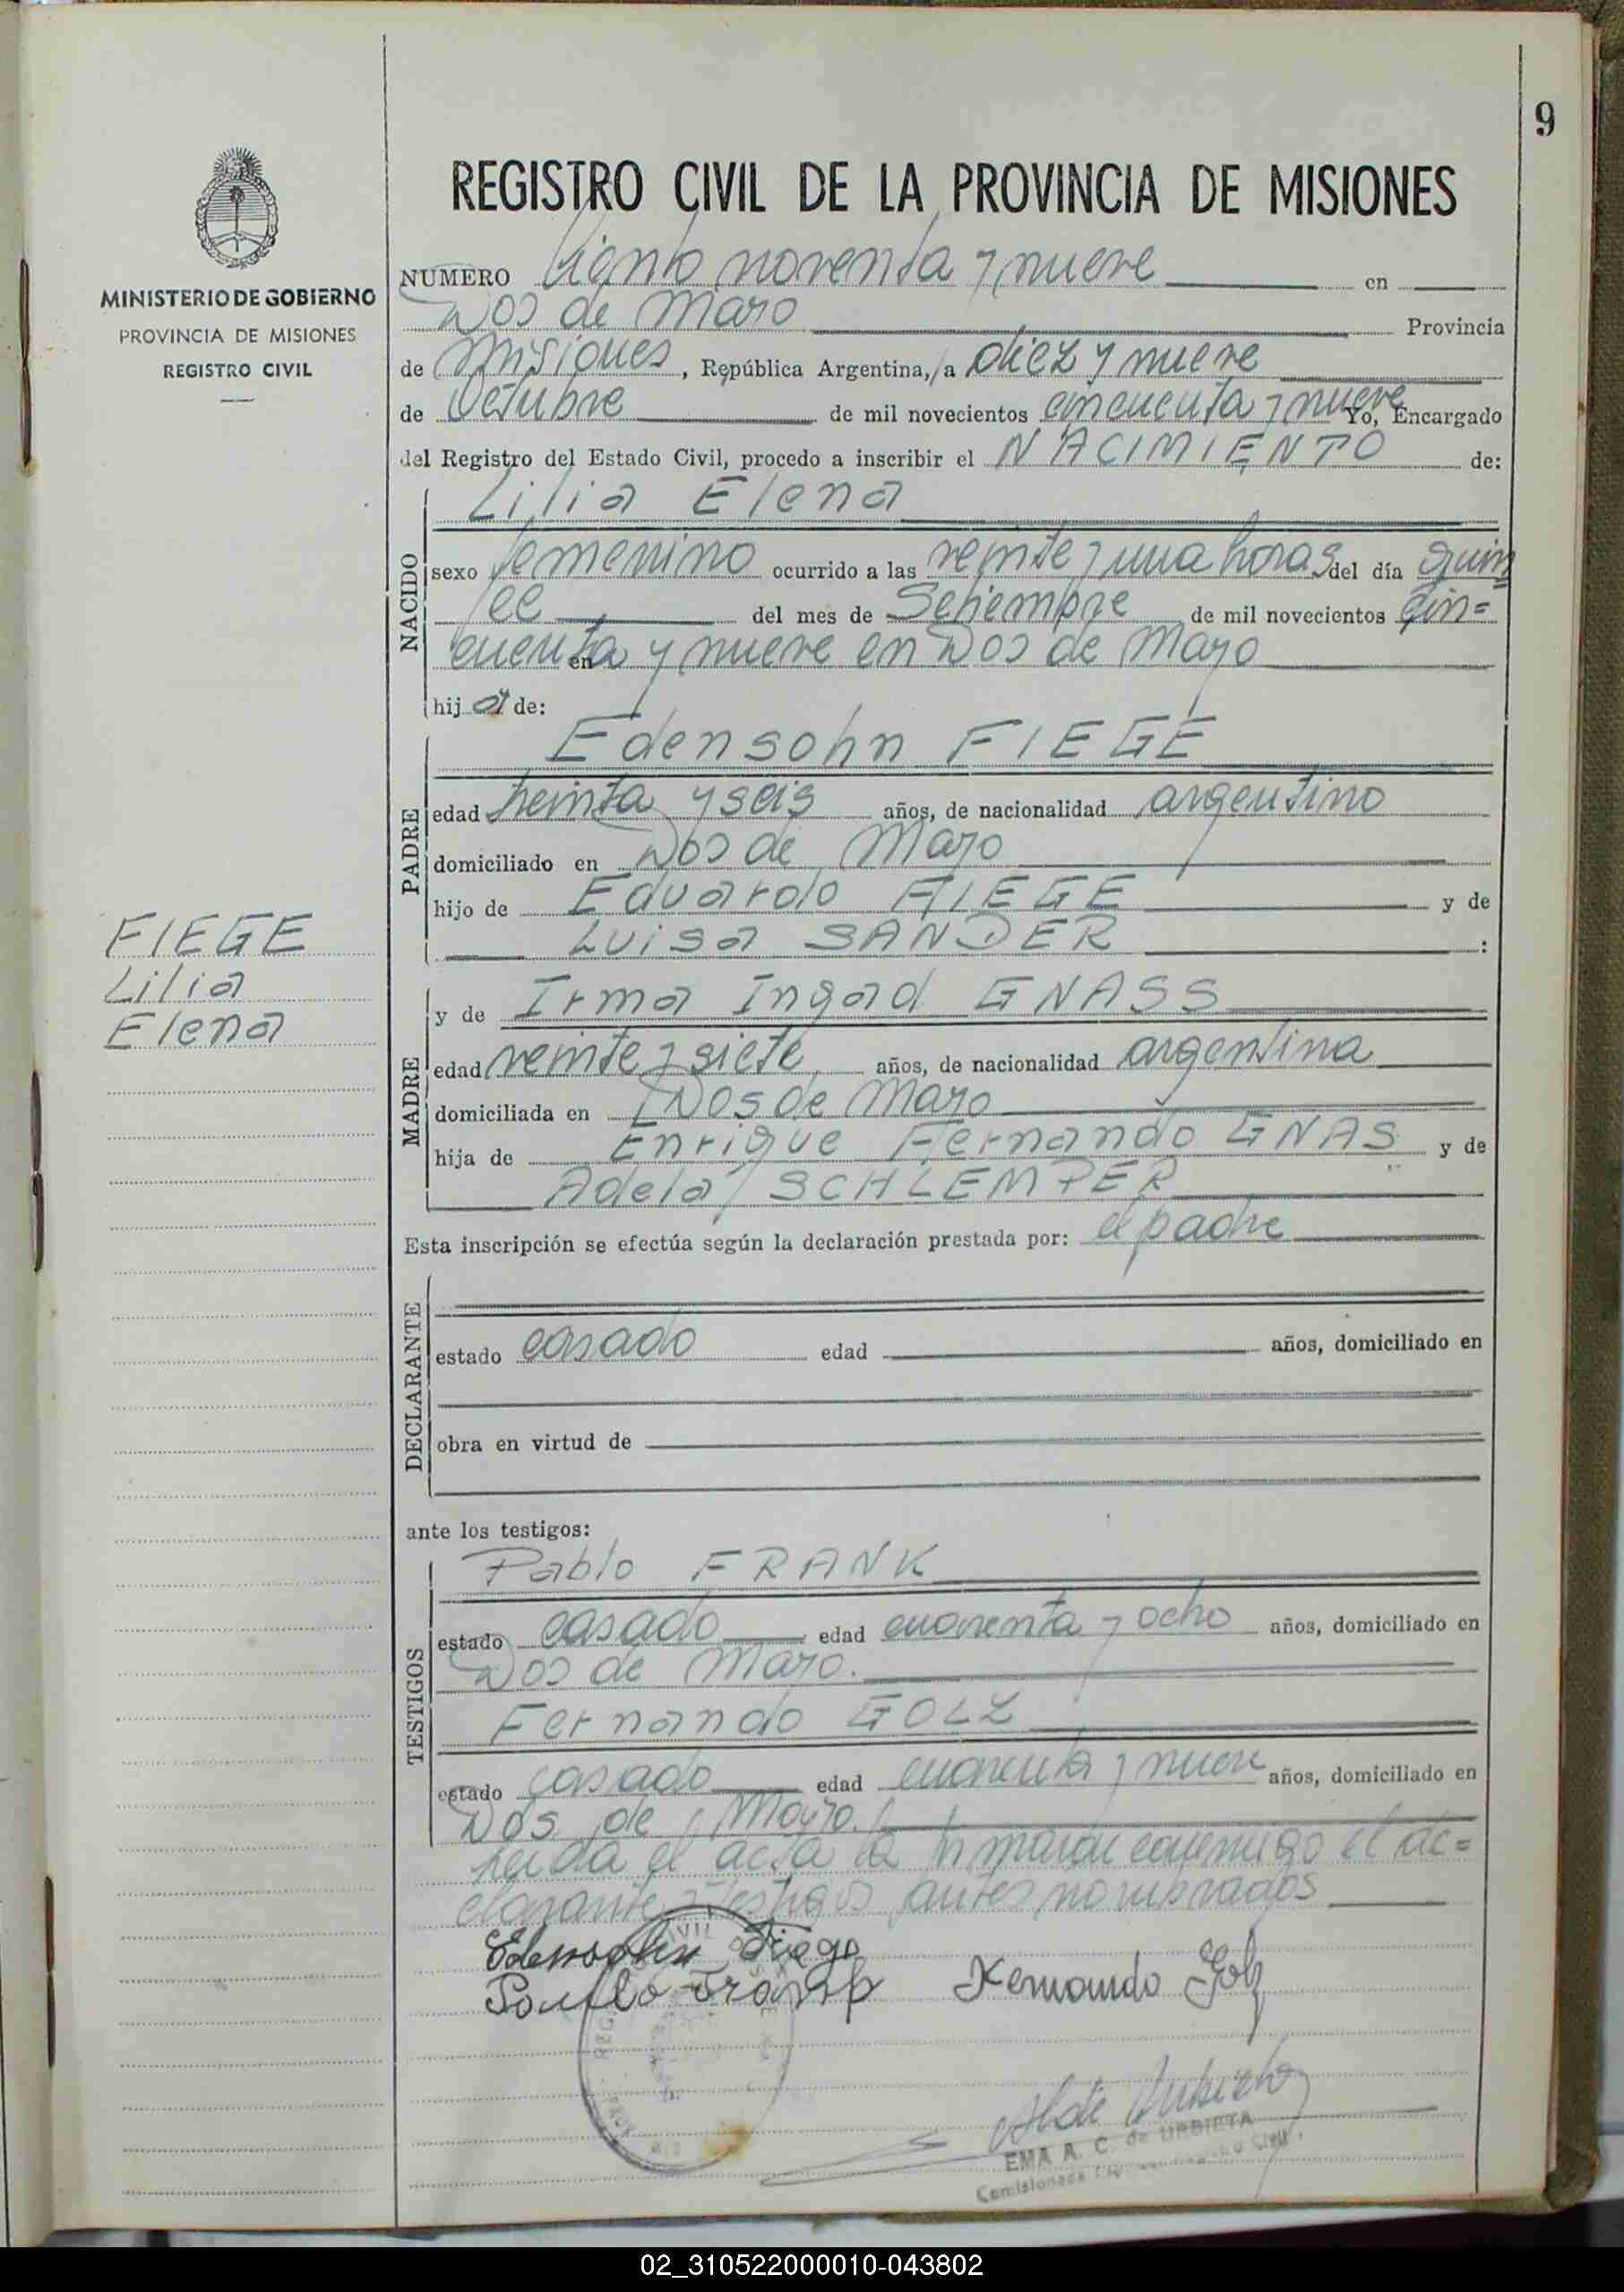 9
REGISTRO CIVIL DE LA PROVINCIA DE MISIONES
MINISTERIO DE GOBIERNO
PROVINCIA DE MISIONES
REGISTRO CIVIL
NUMERO Ciento noventa y nueve en
Dos de Mayo Provincia
de Misiones, República Argentina, a diez y nueve
de Octubre de mil novecientos cincuenta y nueve Yo, Encargado
del Registro del Estado Civil, procedo a inscribir el NACIMIENTO de:
NACIDO
Lilia Elena
sexo femenino ocurrido a las veinte y una horas del día quin
ce del mes de Setiembre de mil novecientos cin=
cuenta y nueve en Dos de Mayo
en
hija de:
PADRE
Edensohn FIEGE
edad treinta y seis años, de nacionalidad argentino
domiciliado en Dos de Mayo
hijo de Eduardo FIEGE y de
Luisa SANDER :
FIEGE
Lilia
Elena
MADRE
y de Irma Ingad GNASS
edad veinte y siete años, de nacionalidad argentina
domiciliada en Dos de Mayo
hija de Enrique Fernando GNAS y de
Adela SCHLEMPER
Esta inscripción se efectúa según la declaración prestada por: el padre
DECLARANTE
estado casado edad años, domiciliado en
obra en virtud de
ante los testigos:
TESTIGOS
Pablo FRANK
estado casado edad cuarenta y ocho años, domiciliado en
Dos de Mayo.
Fernando GOLZ
estado casado edad cuarenta y nueve años, domiciliado en
Dos de Mayo.
Leida el acta la firmaron conmigo el de=
clarante y testigos antes nombrados
Edensohn Fiege
Pablo Frank Fernando Golz
EMA A. C. de URBIETA
02_310522000010-043802